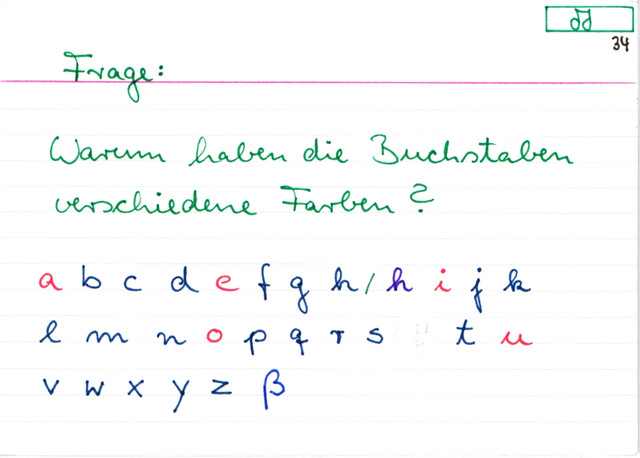 34
Frage:
Warum haben die Buchstaben
verschiedene Farben?
a b c d e f g h / h i j k
l m n o p q r s t u
v w x y z ß